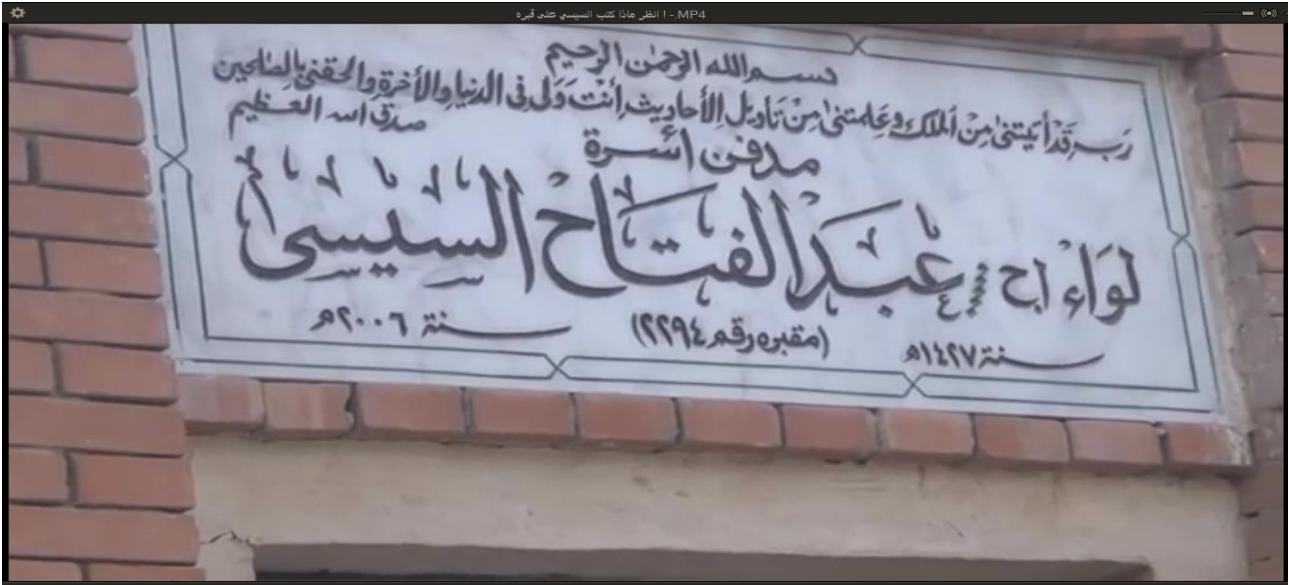 انظر ماذا كتب السيسي على قبره ! -.MP4
بسم الله الرحمن الرحيم
رَب قَدْ أتيتنى مِنْ ألملك وعَلمتنى مِنْ تَأويل الأحاديث أنتَ وَلى فى الدنيا والأخرة والحقنى بالصالحين
صدق الله العظيم
مدفن أسرة
لوَاء اح / عَبدَ الفتَاح السيسى
سنة ١٤٢٧هـ (مقبره رقم ٢٢٩٤) سنة ٢٠٠٦م